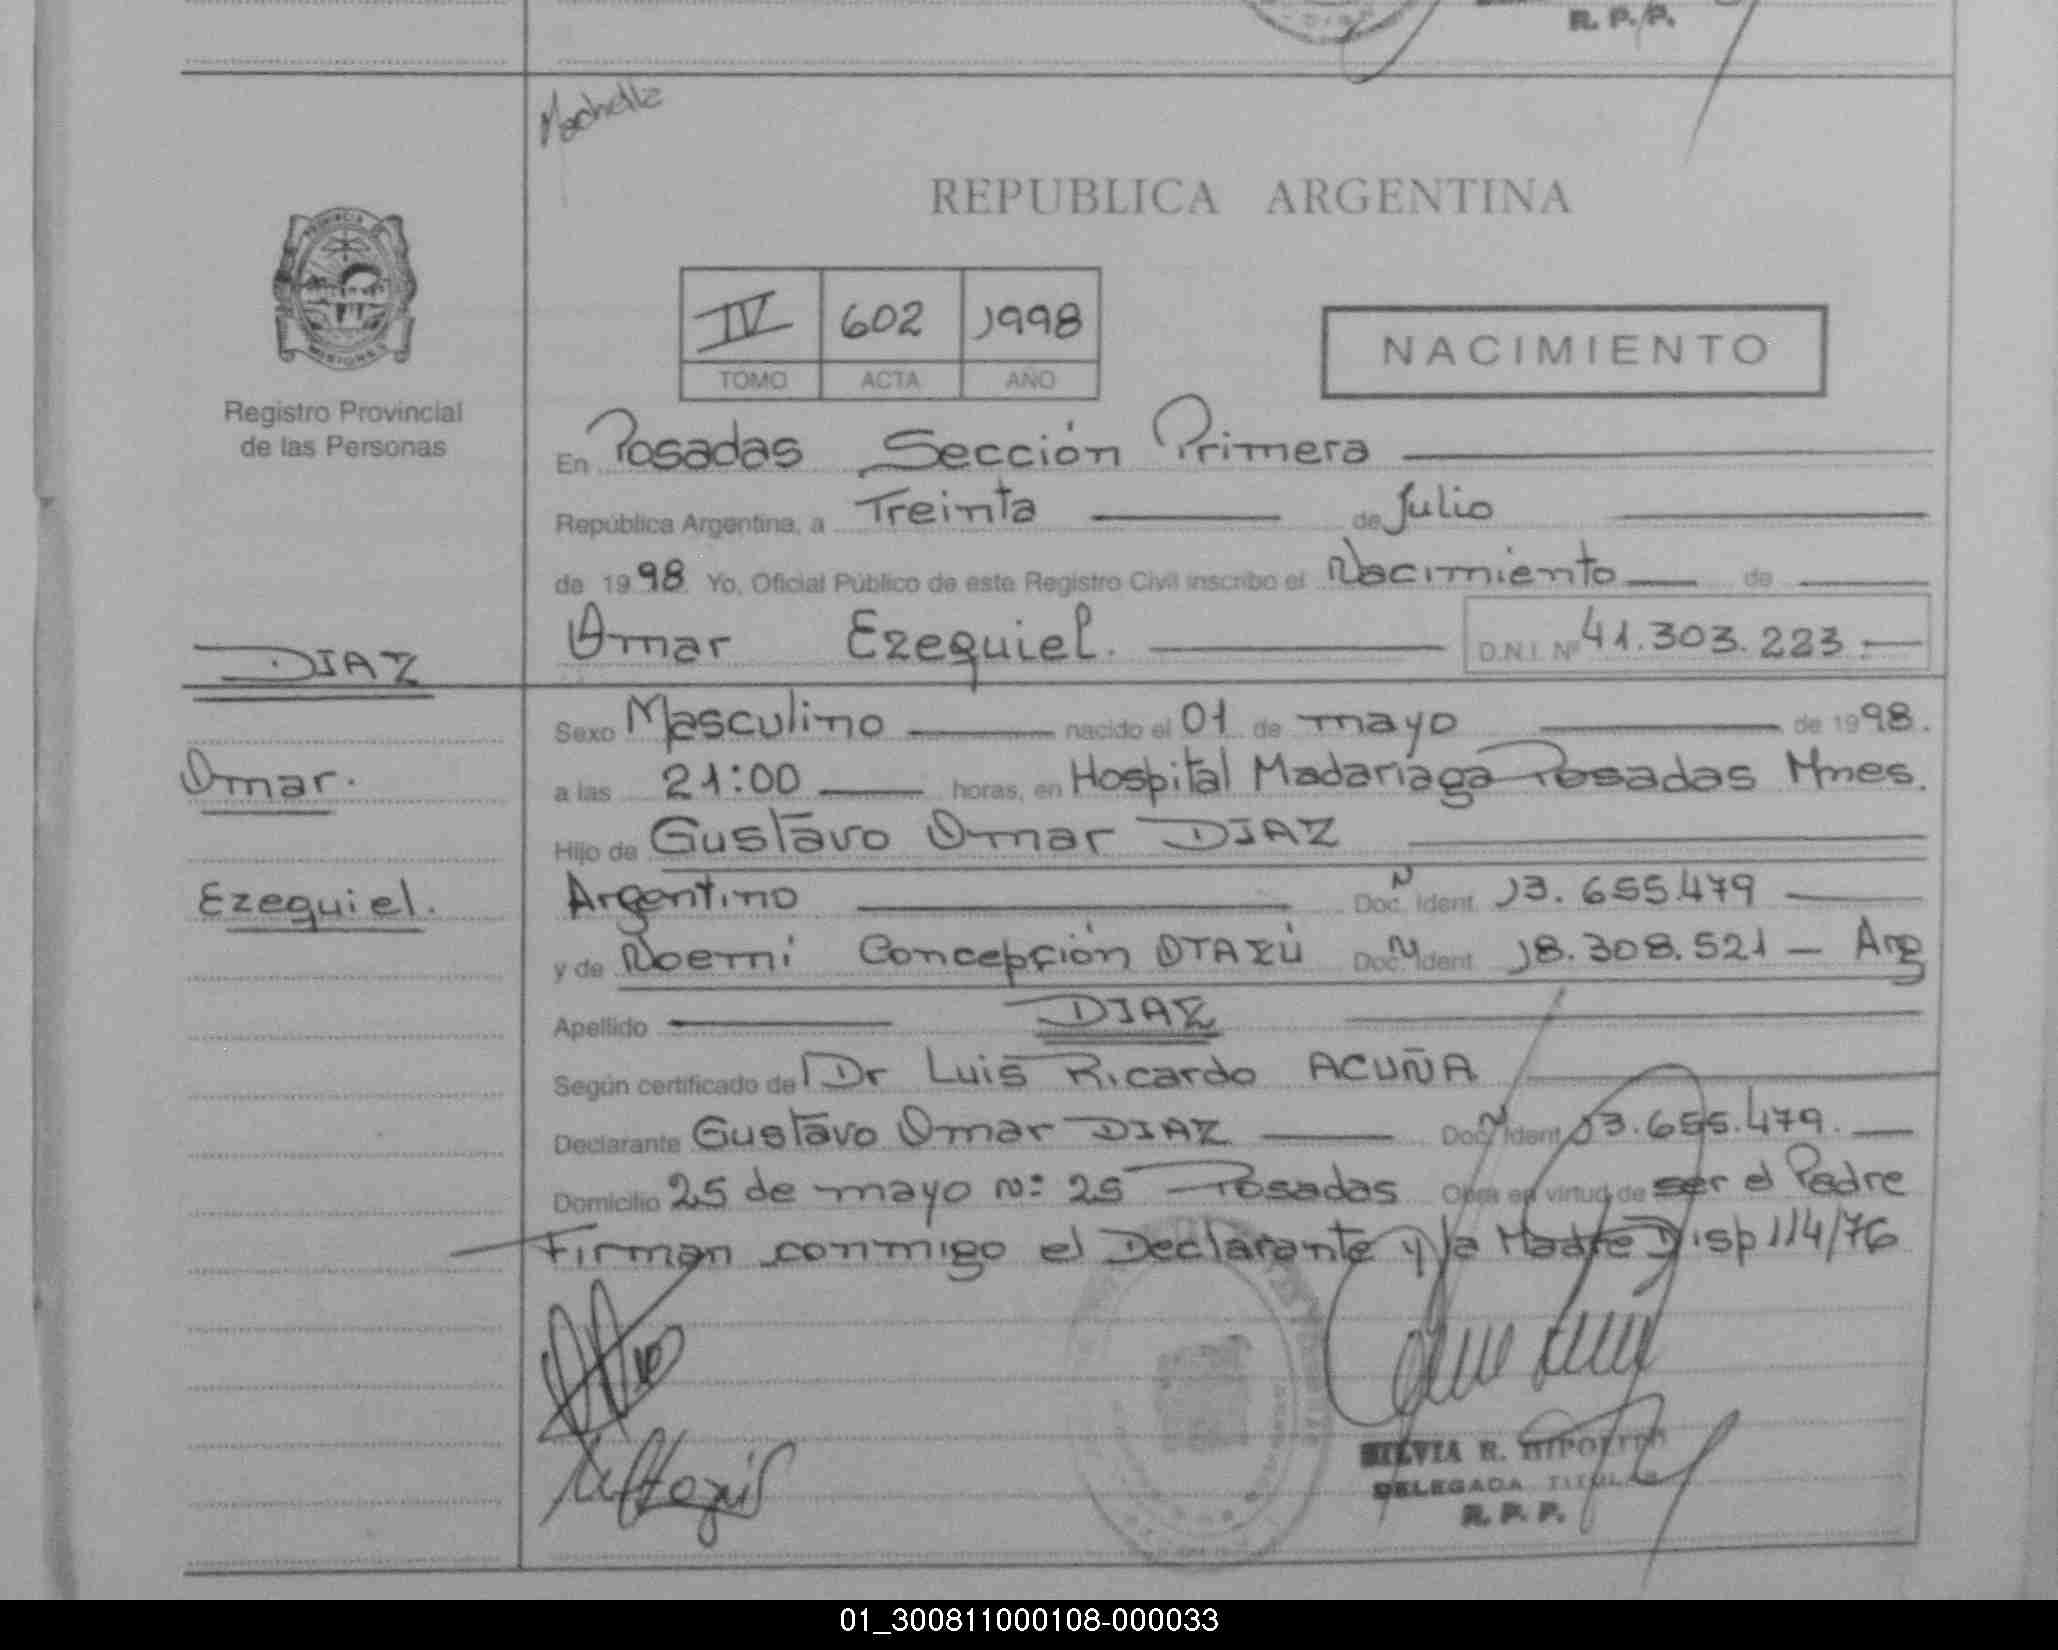 R. P. P.
REPUBLICA ARGENTINA
PROVINCIA
MISIONES
Registro Provincial
de las Personas
IV 602 1998
TOMO ACTA AÑO
NACIMIENTO
En Posadas Sección Primera
República Argentina, a Treinta de Julio
de 1998 Yo, Oficial Público de este Registro Civil inscribo el Nacimiento de
DIAZ
Omar Ezequiel. D.N.I. Nº 41.303.223.
Sexo Masculino nacido el 01 de mayo de 1998.
Omar.
a las 21:00 horas, en Hospital Madariaga Posadas Mnes.
Hijo de Gustavo Omar DIAZ
Ezequiel.
Argentino Doc. Ident. 13.655.479
y de Noemí Concepción OTAZÚ Doc. Ident. 18.308.521 - Arg
Apellido DIAZ
Según certificado de Dr Luis Ricardo ACUÑA
Declarante Gustavo Omar DIAZ Doc. Ident. 13.655.479.
Domicilio 25 de mayo Nº: 25 Posadas Obra en virtud de ser el Padre
Firman conmigo el Declarante y la Madre Disp 114/76
SILVIA R. HIPOLITO
DELEGADA TITULAR
R. P. P.
01_300811000108-000033